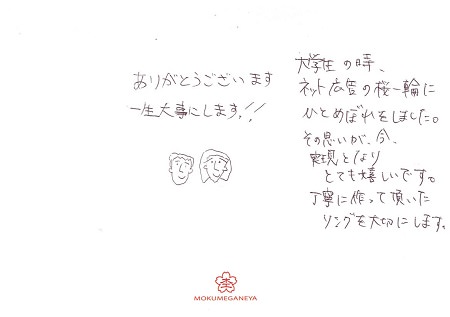 ありがとうございます
一生大事にします!!
大学生の時、
ネット広告の桜一輪に
ひとめぼれをしました。
その思いが、今、
実現となり
とても嬉しいです。
丁寧に作って頂いた
リングを大切にします。
MOKUMEGANEYA